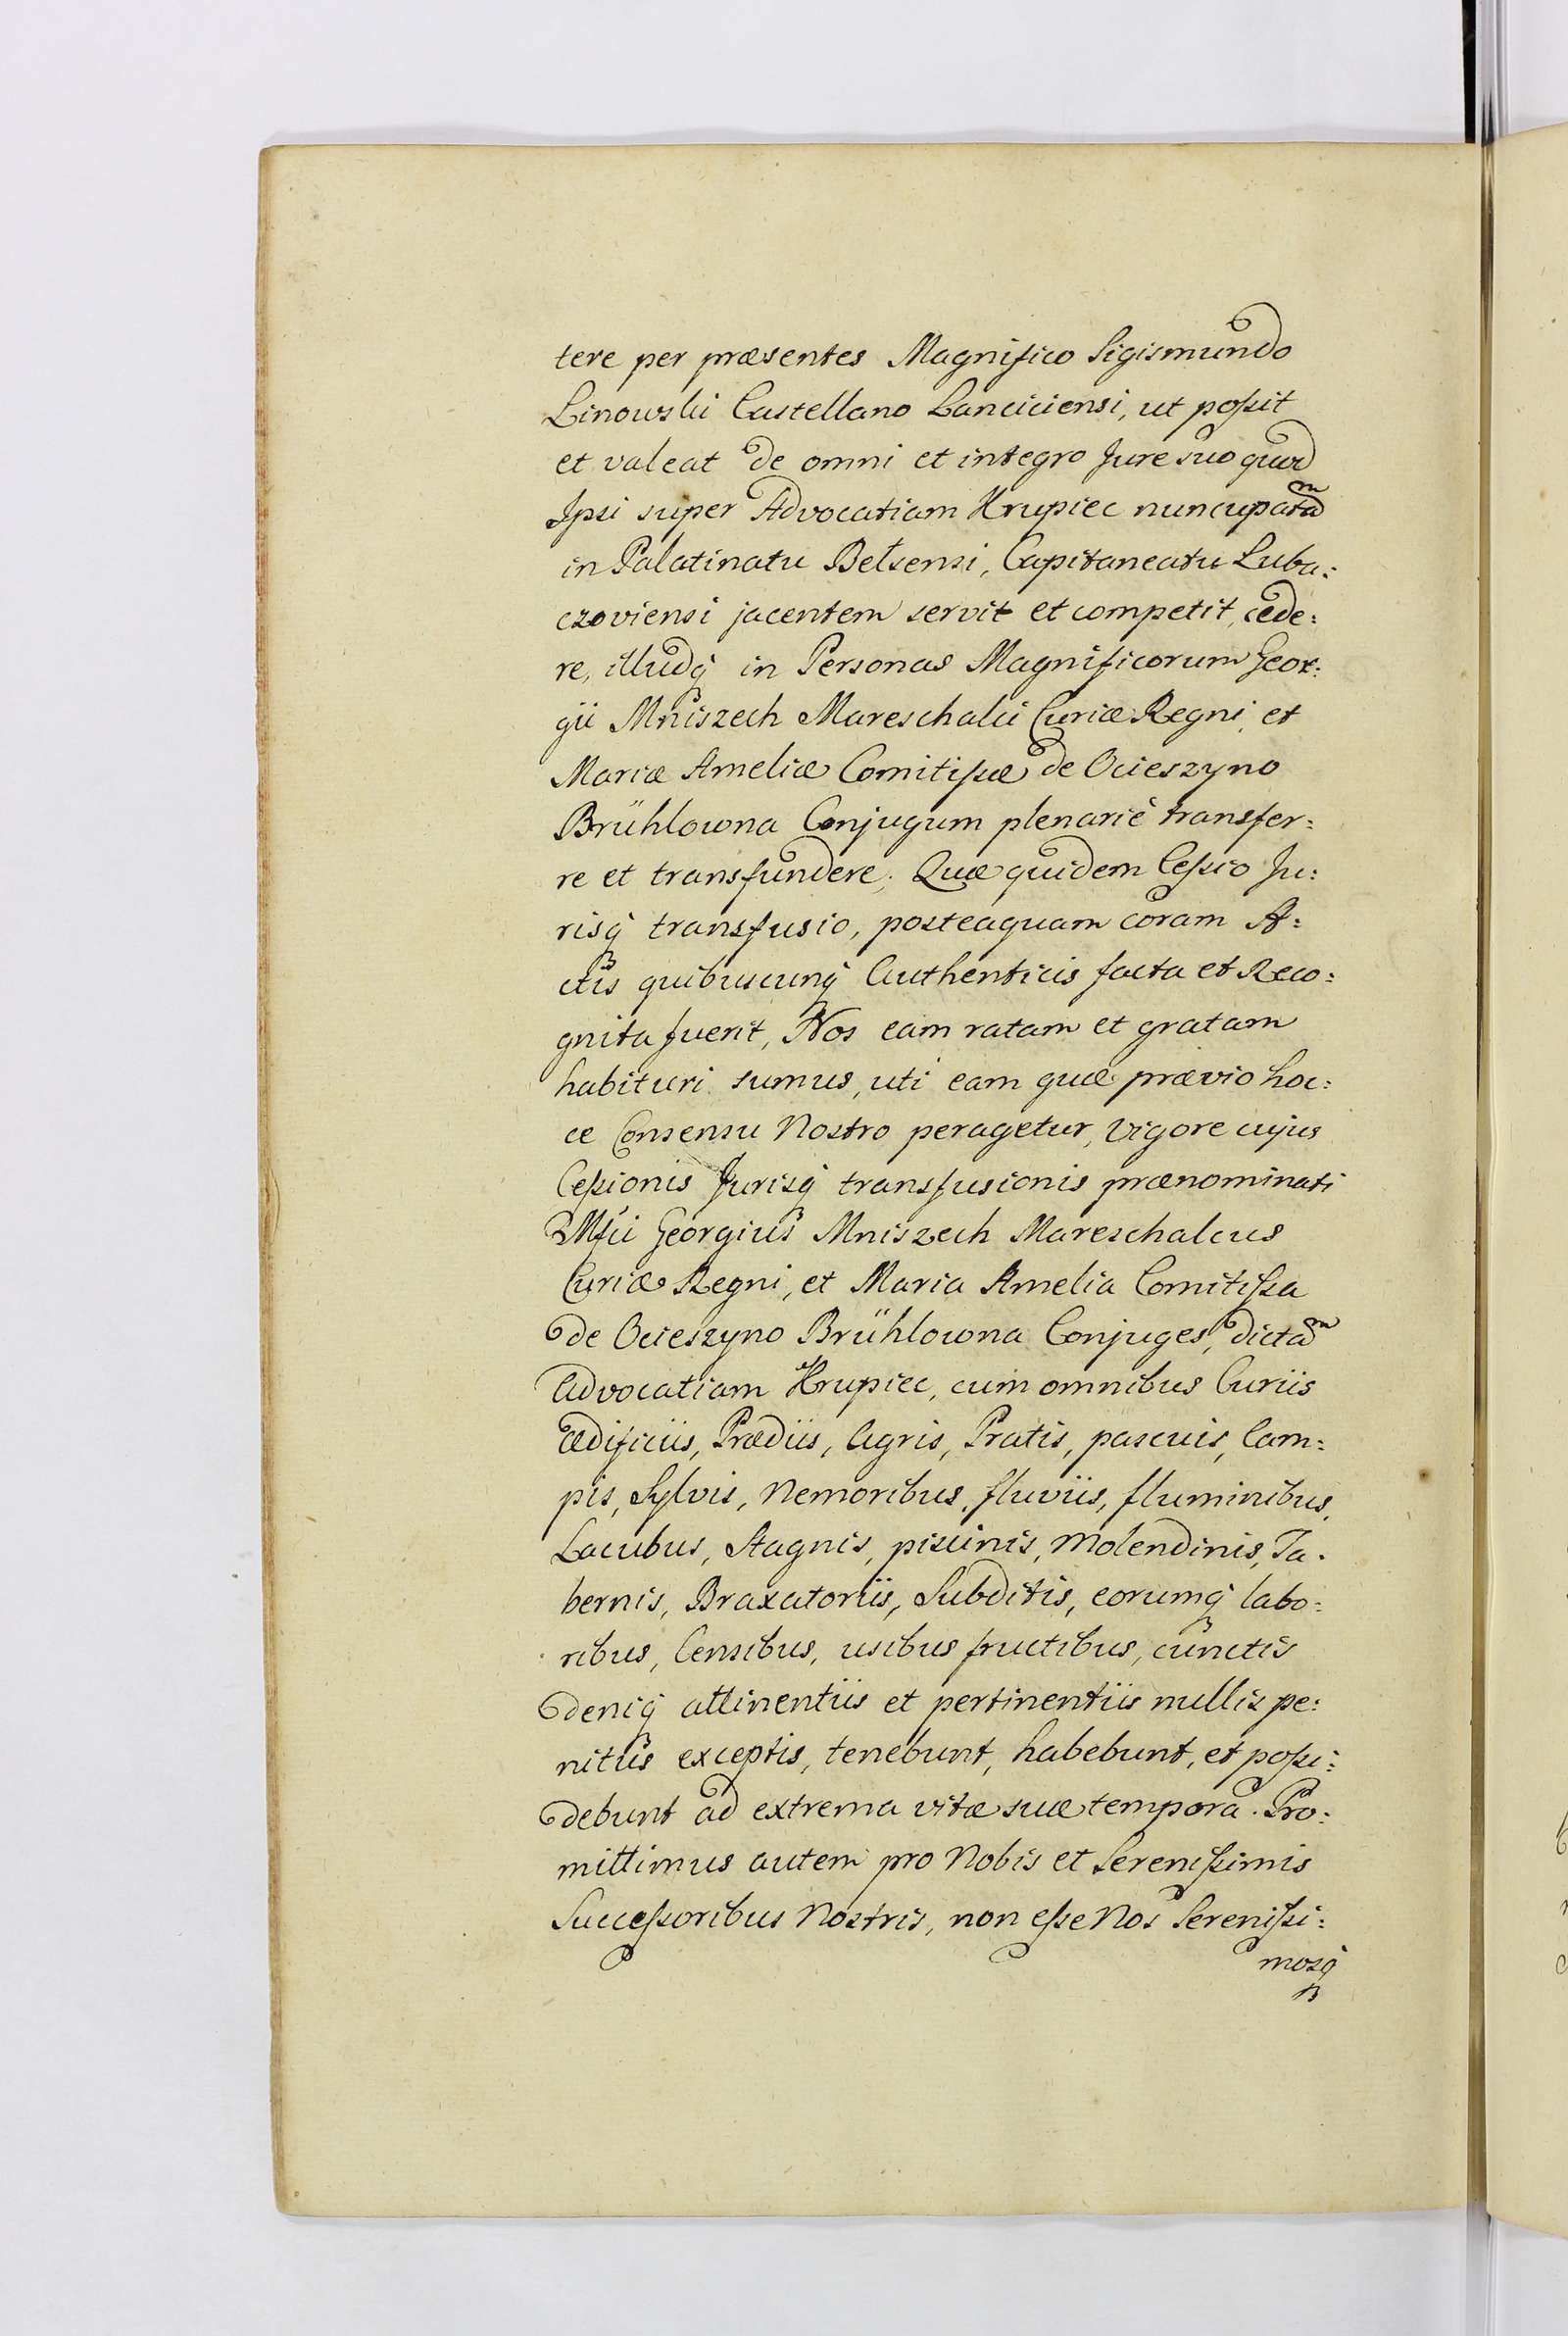 tere per præsentes Magnifico Sigismundo
Linowski Castellano Lanciciensi, ut poßit
et valeat de omni et integro Jure suo quod
Ipsi super Advocatiam Krupiec nuncupatã
in Palatinatu Belsensi, Capitaneatu Luba:
czoviensi jacentem servit et competit, cede:
re, illudq́ in Personas Magnificorum Geor:
gii Mniszech Mareschalci Curiæ Regni et
Mariæ Ameliæ Comitißæ de Ocieszyno
Brühlowna Conjugum plenariè transfer:
re et transfundere; Quæ quidem Ceßio Ju:
risq́ transfusio, posteaquam coram A:
ctis quibuscunq́ Authenticis facta et Reco:
gnita fuerit, Nos eam ratam et gratam
habituri sumus, uti eam quæ prævio hoc:
ce Consensu Nostro peragetur, Vigore cujus
Ceßionis Jurisq́ transfusionis prænominati
Mfci Georgius Mniszech Mareschalcus
Curiæ Regni, et Maria Amelia Comitißa
de Ocieszyno Brühlowna Conjuges, dictã
Advocatiam Krupiec, cum omnibus Curiis
ædificiis, Prædiis, Agris, Pratis, pascuis, Cam:
pis, Sylvis, Nemoribus, fluviis, fluminibus,
Lacubus, Stagnis, piscinis, Molendinis, Ta:
bernis, Braxatoriis, Subditis, eorumq́ labo:
ribus, Censibus, usibus fructibus, cunctis
deniq́ attinentiis et pertinentiis nullis pe:
nitus exceptis, tenebunt, habebunt, et poßi:
debunt ad extrema vitæ suæ tempora. Pro:
mittimus autem pro Nobis et Serenißimis
Succeßoribus Nostris, non eße Nos Serenißi:
mosq́